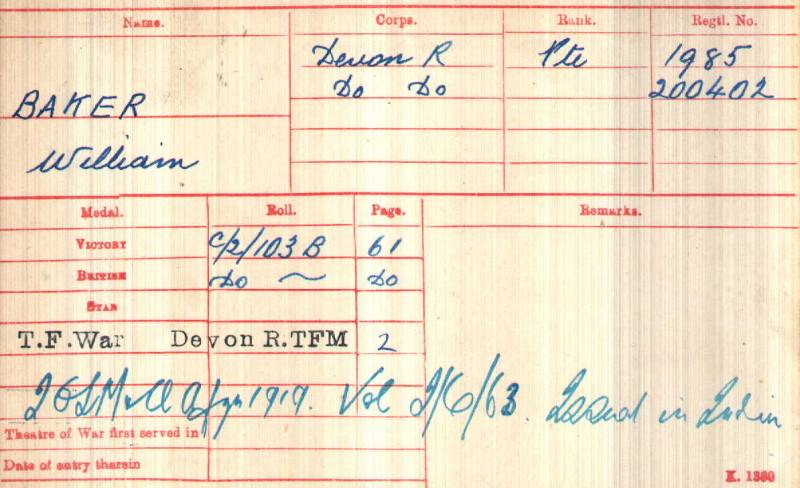 Name. Corps. Rank. Regtl. No.
Devon R Pte 1985
Do Do 200402
BAKER
William
Medal. Roll. Page. Remarks.
VICTORY C/2/103 B 61
BRITISH Do ~ Do
STAR
T.F.War Devon R.TFM 2
1919. Vol 2/6/63. Issued in India
Theatre of War first served in
Date of entry therein
K. 1380